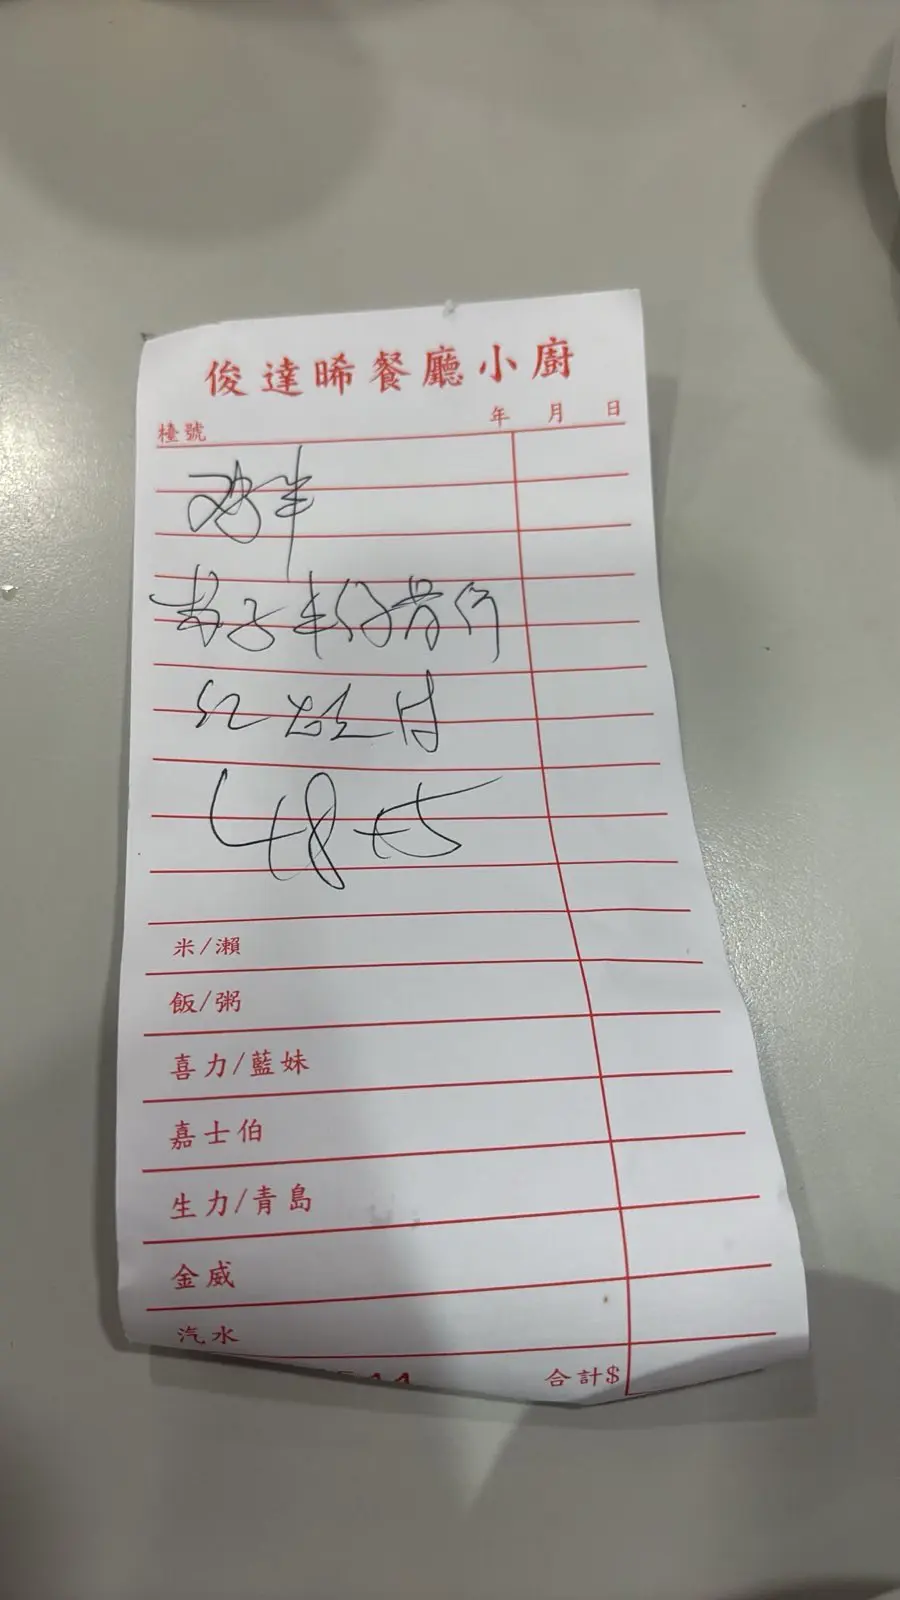 俊達晞餐廳小廚
檯號 年 月 日
鸡半
子羊仔骨
红
48+5
米/瀨
飯/粥
喜力/藍妹
嘉士伯
生力/青島
金威
汽水
合計$